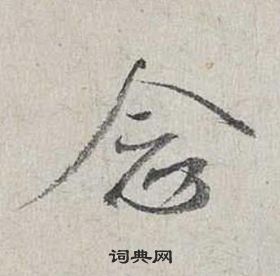 念
词典网